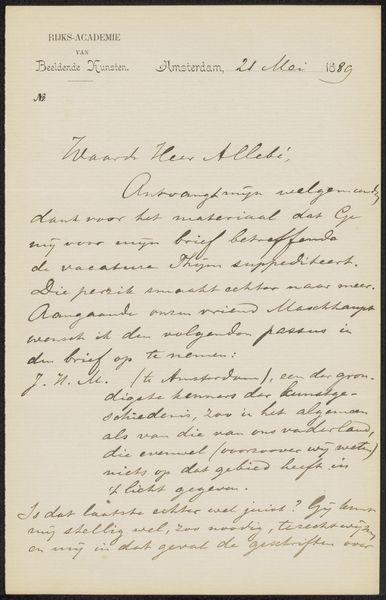 RIJKS-ACADEMIE
VAN
Beeldende Kunsten.
Amsterdam, 21 Mei 1889
No.
Waarde Heer Allebé,
Ontvang mijn welgemeenden
dank voor het materiaal dat Ge
mij voor mijn brief betreffende
de vacature Thijm suppediteert.
Die perzik smaakt echter naar meer.
Aangaande onzen vriend Maschhaupt
wensch ik den volgenden passus in
den brief op te nemen:
J. H. M. (te Amsterdam), een der gron-
digste kenners der kunstge-
schiedenis, zoo in het algemeen
als van die van ons vaderland,
die evenwel (voorzoover wij weten)
niets op dat gebied heeft in
't licht gegeven.
Is dat laatste echter wel juist? Gij kunt
mij stellig wel, zoo noodig, terechtwijzen
en mij in dat geval de geschriften over